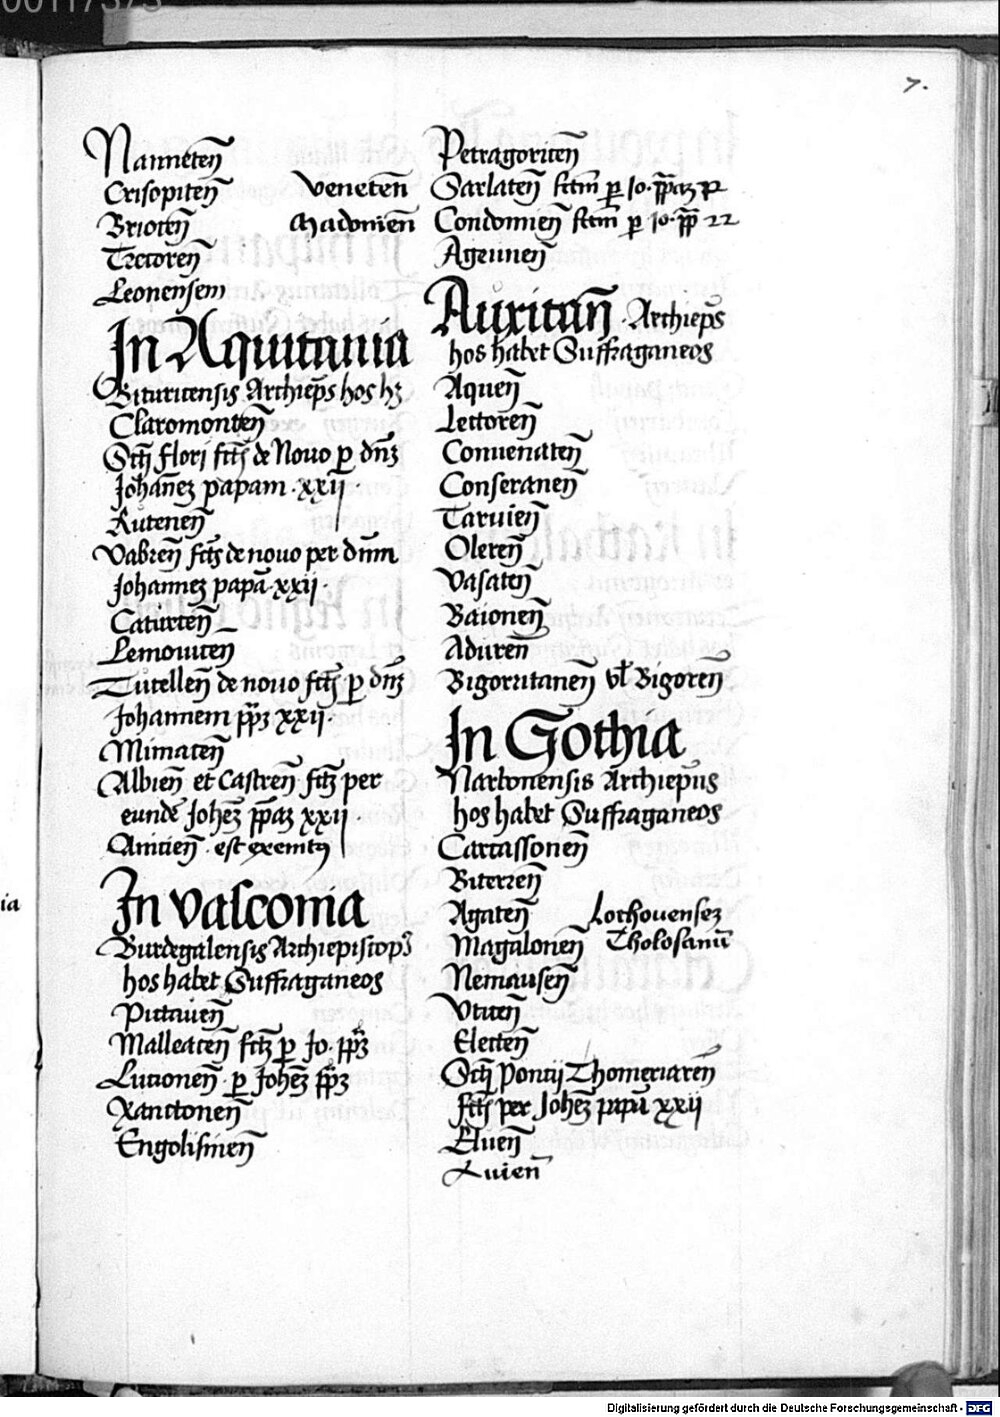 7.
Nanneten̄
Crisopiten̄ Veneten̄
Brioten̄ Madonien̄
Trecoren̄
Leonensem
In Aquitania
Bituricensis Archiep̄s hos hꝫ
Claromonten̄
Sc̄ti flori fc̄ts de Nouo ꝑ dn̄ꝫ
Joha̅neꝫ papam · xxij
Rutenen̄
Vabren̄ fc̄ts de nouo per dn̄m
Johanneꝫ papā · xxij ·
Caturcen̄
Lemouicen̄
Tutellen̄ de nouo fc̄ts ꝑ dn̄ꝫ
Johannem pp̄ꝫ xxij ·
Mimaten̄
Albien̄ et Castren̄ fc̄ts per
eundē Joh̄eꝫ pp̄aꝫ xxij
Anicien̄ · est exemtꝰ
In Vasconia
Burdegalensis Archiepiscopꝰ
hos habet Suffraganeos
Pictauen̄
Malleacen̄ fc̄ts ꝑ Jo · pp̄ꝫ
Lucionen̄ · ꝑ Joh̄eꝫ pp̄ꝫ
Xanctonen̄
Engolismen̄
Petragoricen̄
Sarlaten̄ fc̄tm ꝑ Jo · pp̄aꝫ 22
Condomien̄ fc̄tm ꝑ Jo · pp̄ 22
Agennen̄
Auxitan̄ · Archiep̄s
hos habet Suffraganeos
Aquen̄
Lectoren̄
Conuenaten̄
Conseranen̄
Taruien̄
Oleren̄
Vasaten̄
Baionen̄
Aduren̄
Bigorritanen̄ vl̄ Bigoren̄
In Gothia
Narbonensis Archiep̄us
hos habet Suffraganeos
Carcassonen̄
Biterren̄
Agaten̄ Lothouenseꝫ
Magalonen̄ Tholosanū
Nemausen̄
Vticen̄
Electen̄
Sc̄ti Pontij Thomeriaren̄
fc̄ts per Joh̄eꝫ papā xxij
Eluen̄
Digitalisierung gefördert durch die Deutsche Forschungsgemeinschaft - DFG